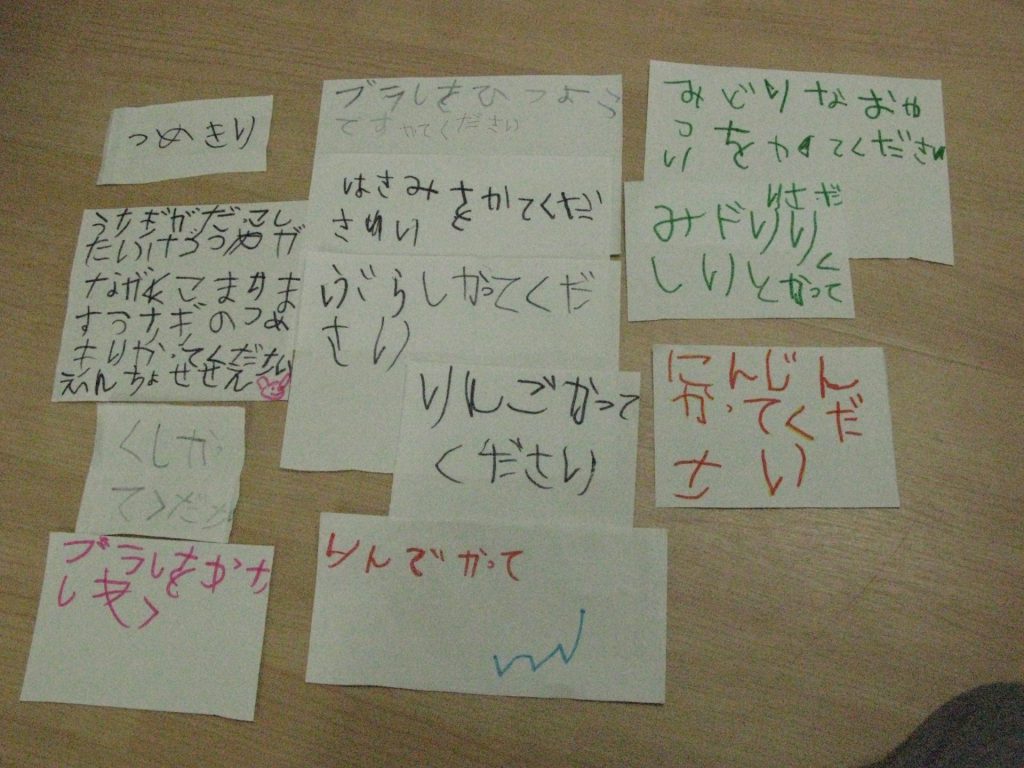 つめきり
ブラしをひつよう
ですやてください
みどりなおや
つをかってください
い
はさみをかてくだ
さい
うさぎがだっこし
たいけどつめが
ながくてこまりま
すうさぎのつめ
きりかってください
えんちょせんせえ
りさだ
みドリり
しりとかって
ぶらしかってくだ
さい
りんごかって
ください
にんじん
かってくだ
さい
くしかっ
てくださ
ブラしをかて
りんごかって